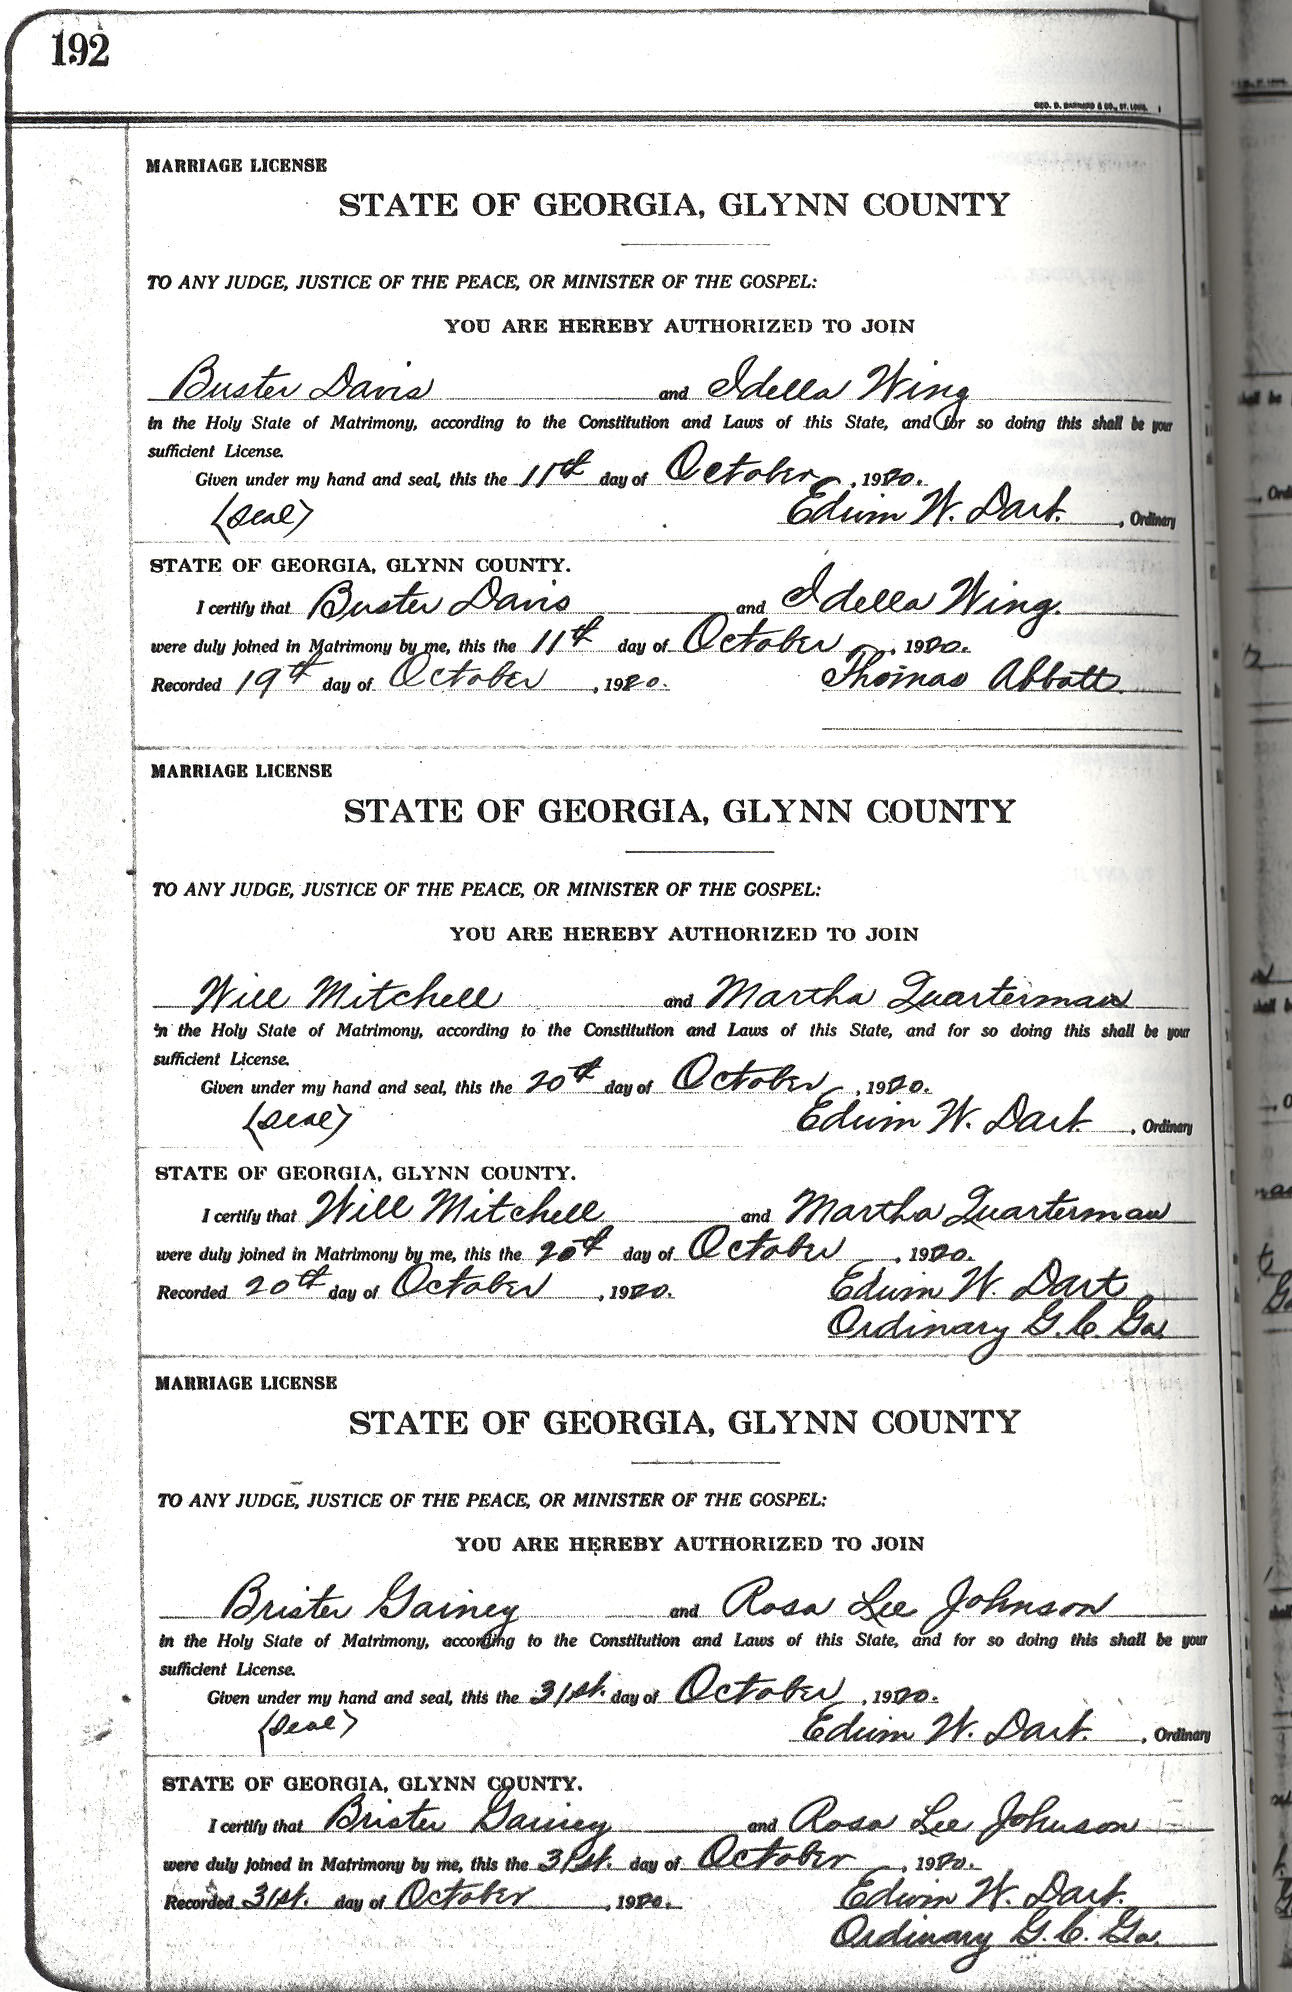 192
GEO. D. BARNARD & CO., ST. LOUIS.
MARRIAGE LICENSE
STATE OF GEORGIA, GLYNN COUNTY
TO ANY JUDGE, JUSTICE OF THE PEACE, OR MINISTER OF THE GOSPEL:
YOU ARE HEREBY AUTHORIZED TO JOIN
Buster Davis and Idella Wing
in the Holy State of Matrimony, according to the Constitution and Laws of this State, and for so doing this shall be your
sufficient License.
Given under my hand and seal, this the 11th day of October, 1920.
(seal) Edwin W. Dart., Ordinary
STATE OF GEORGIA, GLYNN COUNTY.
I certify that Buster Davis and Idella Wing.
were duly joined in Matrimony by me, this the 11th day of October, 1920.
Recorded 19th day of October, 1920. Thomas Abbott
MARRIAGE LICENSE
STATE OF GEORGIA, GLYNN COUNTY
TO ANY JUDGE, JUSTICE OF THE PEACE, OR MINISTER OF THE GOSPEL:
YOU ARE HEREBY AUTHORIZED TO JOIN
Will Mitchell and Martha Quarterman
in the Holy State of Matrimony, according to the Constitution and Laws of this State, and for so doing this shall be your
sufficient License.
Given under my hand and seal, this the 20th day of October, 1920.
(seal) Edwin W. Dart., Ordinary
STATE OF GEORGIA, GLYNN COUNTY.
I certify that Will Mitchell and Martha Quarterman
were duly joined in Matrimony by me, this the 20th day of October, 1920.
Recorded 20th day of October, 1920. Edwin W. Dart
Ordinary G.C. Ga.
MARRIAGE LICENSE
STATE OF GEORGIA, GLYNN COUNTY
TO ANY JUDGE, JUSTICE OF THE PEACE, OR MINISTER OF THE GOSPEL:
YOU ARE HEREBY AUTHORIZED TO JOIN
Brister Gainey and Rosa Lee Johnson
in the Holy State of Matrimony, according to the Constitution and Laws of this State, and for so doing this shall be your
sufficient License.
Given under my hand and seal, this the 31st. day of October, 1920.
(seal) Edwin W. Dart., Ordinary
STATE OF GEORGIA, GLYNN COUNTY.
I certify that Brister Gainey and Rosa Lee Johnson
were duly joined in Matrimony by me, this the 31st. day of October, 1920.
Recorded 31st. day of October, 1920. Edwin W. Dart.
Ordinary G.C. Ga.